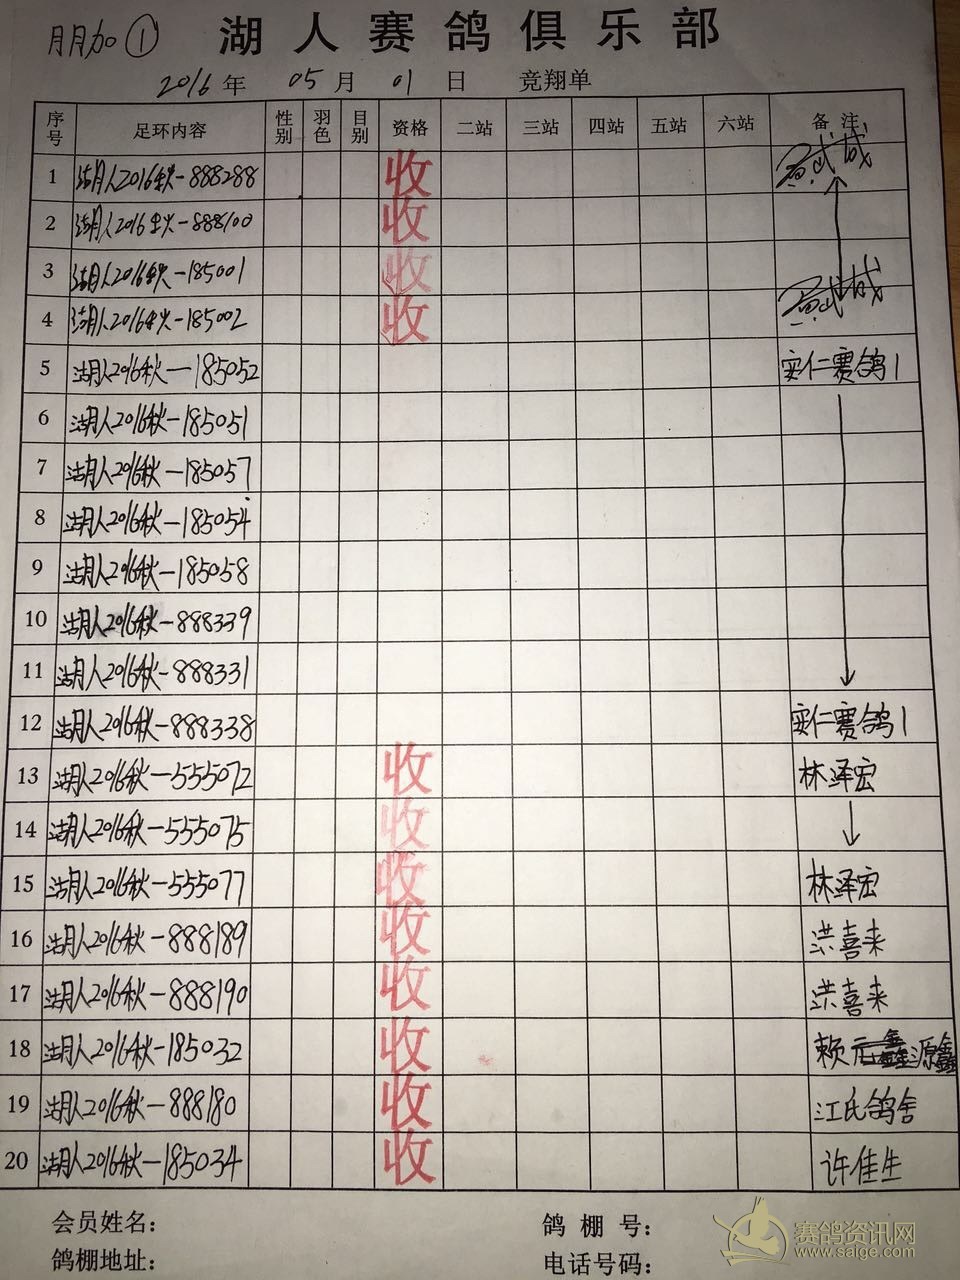 月月加 ① 湖人赛鸽俱乐部
2016 年 05 月 01 日 竞翔单
序号 足环内容 性别 羽色 目别 资格 二站 三站 四站 五站 六站 备注
1 湖人2016秋-888288 收 武城
2 湖人2016秋-888100 收
3 湖人2016秋-185001 收
4 湖人2016秋-185002 收 武城
5 湖人2016秋-185052 实仁赛鸽1
6 湖人2016秋-185051
7 湖人2016秋-185057
8 湖人2016秋-185054
9 湖人2016秋-185058
10 湖人2016秋-888339
11 湖人2016秋-888331
12 湖人2016秋-888338 实仁赛鸽1
13 湖人2016秋-555072 收 林泽宏
14 湖人2016秋-555075 收
15 湖人2016秋-555077 收 林泽宏
16 湖人2016秋-888189 收 洪喜来
17 湖人2016秋-888190 收 洪喜来
18 湖人2016秋-185032 收 赖源鑫
19 湖人2016秋-888180 收 江氏鸽舍
20 湖人2016秋-185034 收 许佳生
会员姓名： 鸽棚号：
鸽棚地址： 电话号码：
赛鸽资讯网
www.saige.com